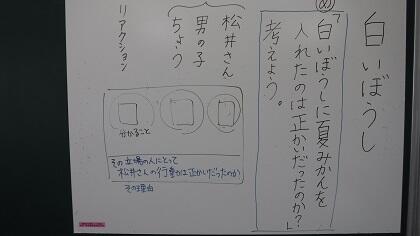 白いぼうし
め
「白いぼうしに夏みかんを
入れたのは正かいだったのか?」
考えよう。
松井さん
男の子
ちょう
リアクション
分かること
その立場の人にとって
松井さんの行動は正かいだったのか
その理由